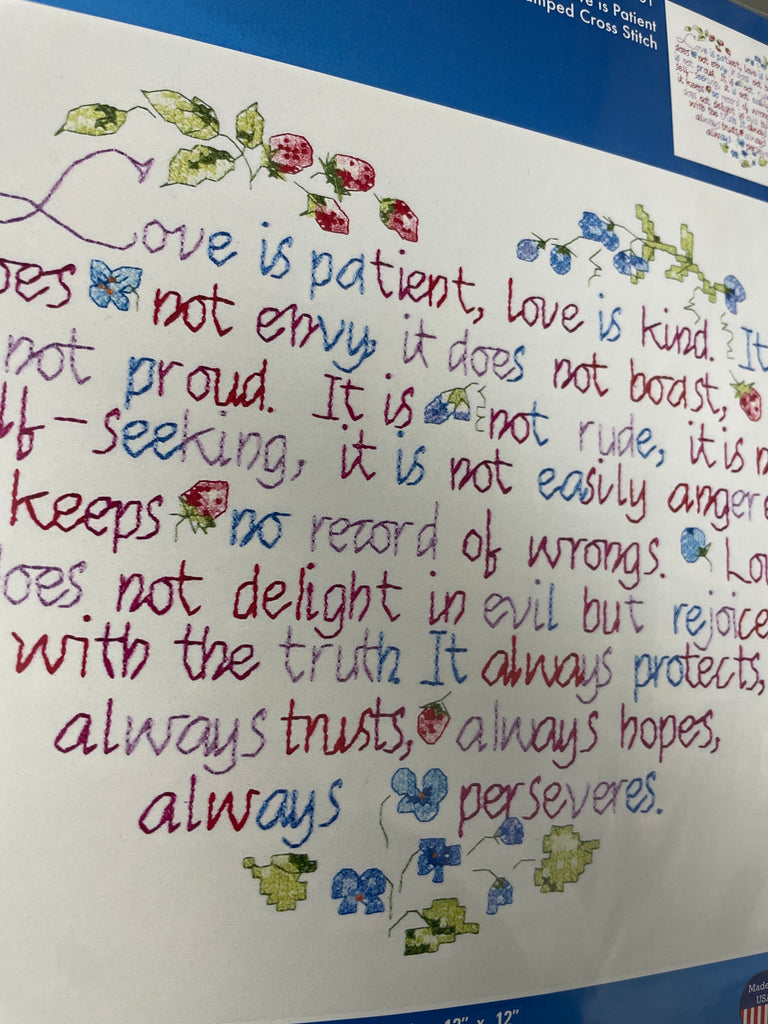 is Patient
Stamped Cross Stitch
Love is patient, love is kind. It
does not envy, it does not boast,
not proud. It is not rude, it is
self-seeking, it is not easily angered
keeps no record of wrongs. Love
does not delight in evil but rejoice
with the truth It always protects,
always trusts, always hopes,
always perseveres.
12" x 12"
Made
USA